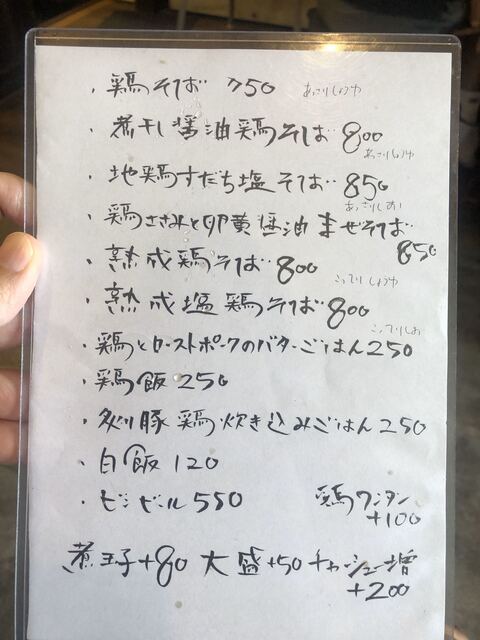 ・鶏そば 750 あっさりしょうゆ
・煮干し醤油鶏そば 800
あっさりしょうゆ
・地鶏すだち塩そば 850
あっさりしお
・鶏ささみと卵黄醤油まぜそば
850
・熟成鶏そば 800
こってりしょうゆ
・熟成塩鶏そば 800
こってりしお
・鶏とローストポークのバターごはん250
・鶏飯 250
・炙り豚鶏炊き込みごはん 250
・白飯 120
・ビンビール 550 鶏ワンタン
+100
煮玉子+80 大盛+50 チャーシュー増
+200